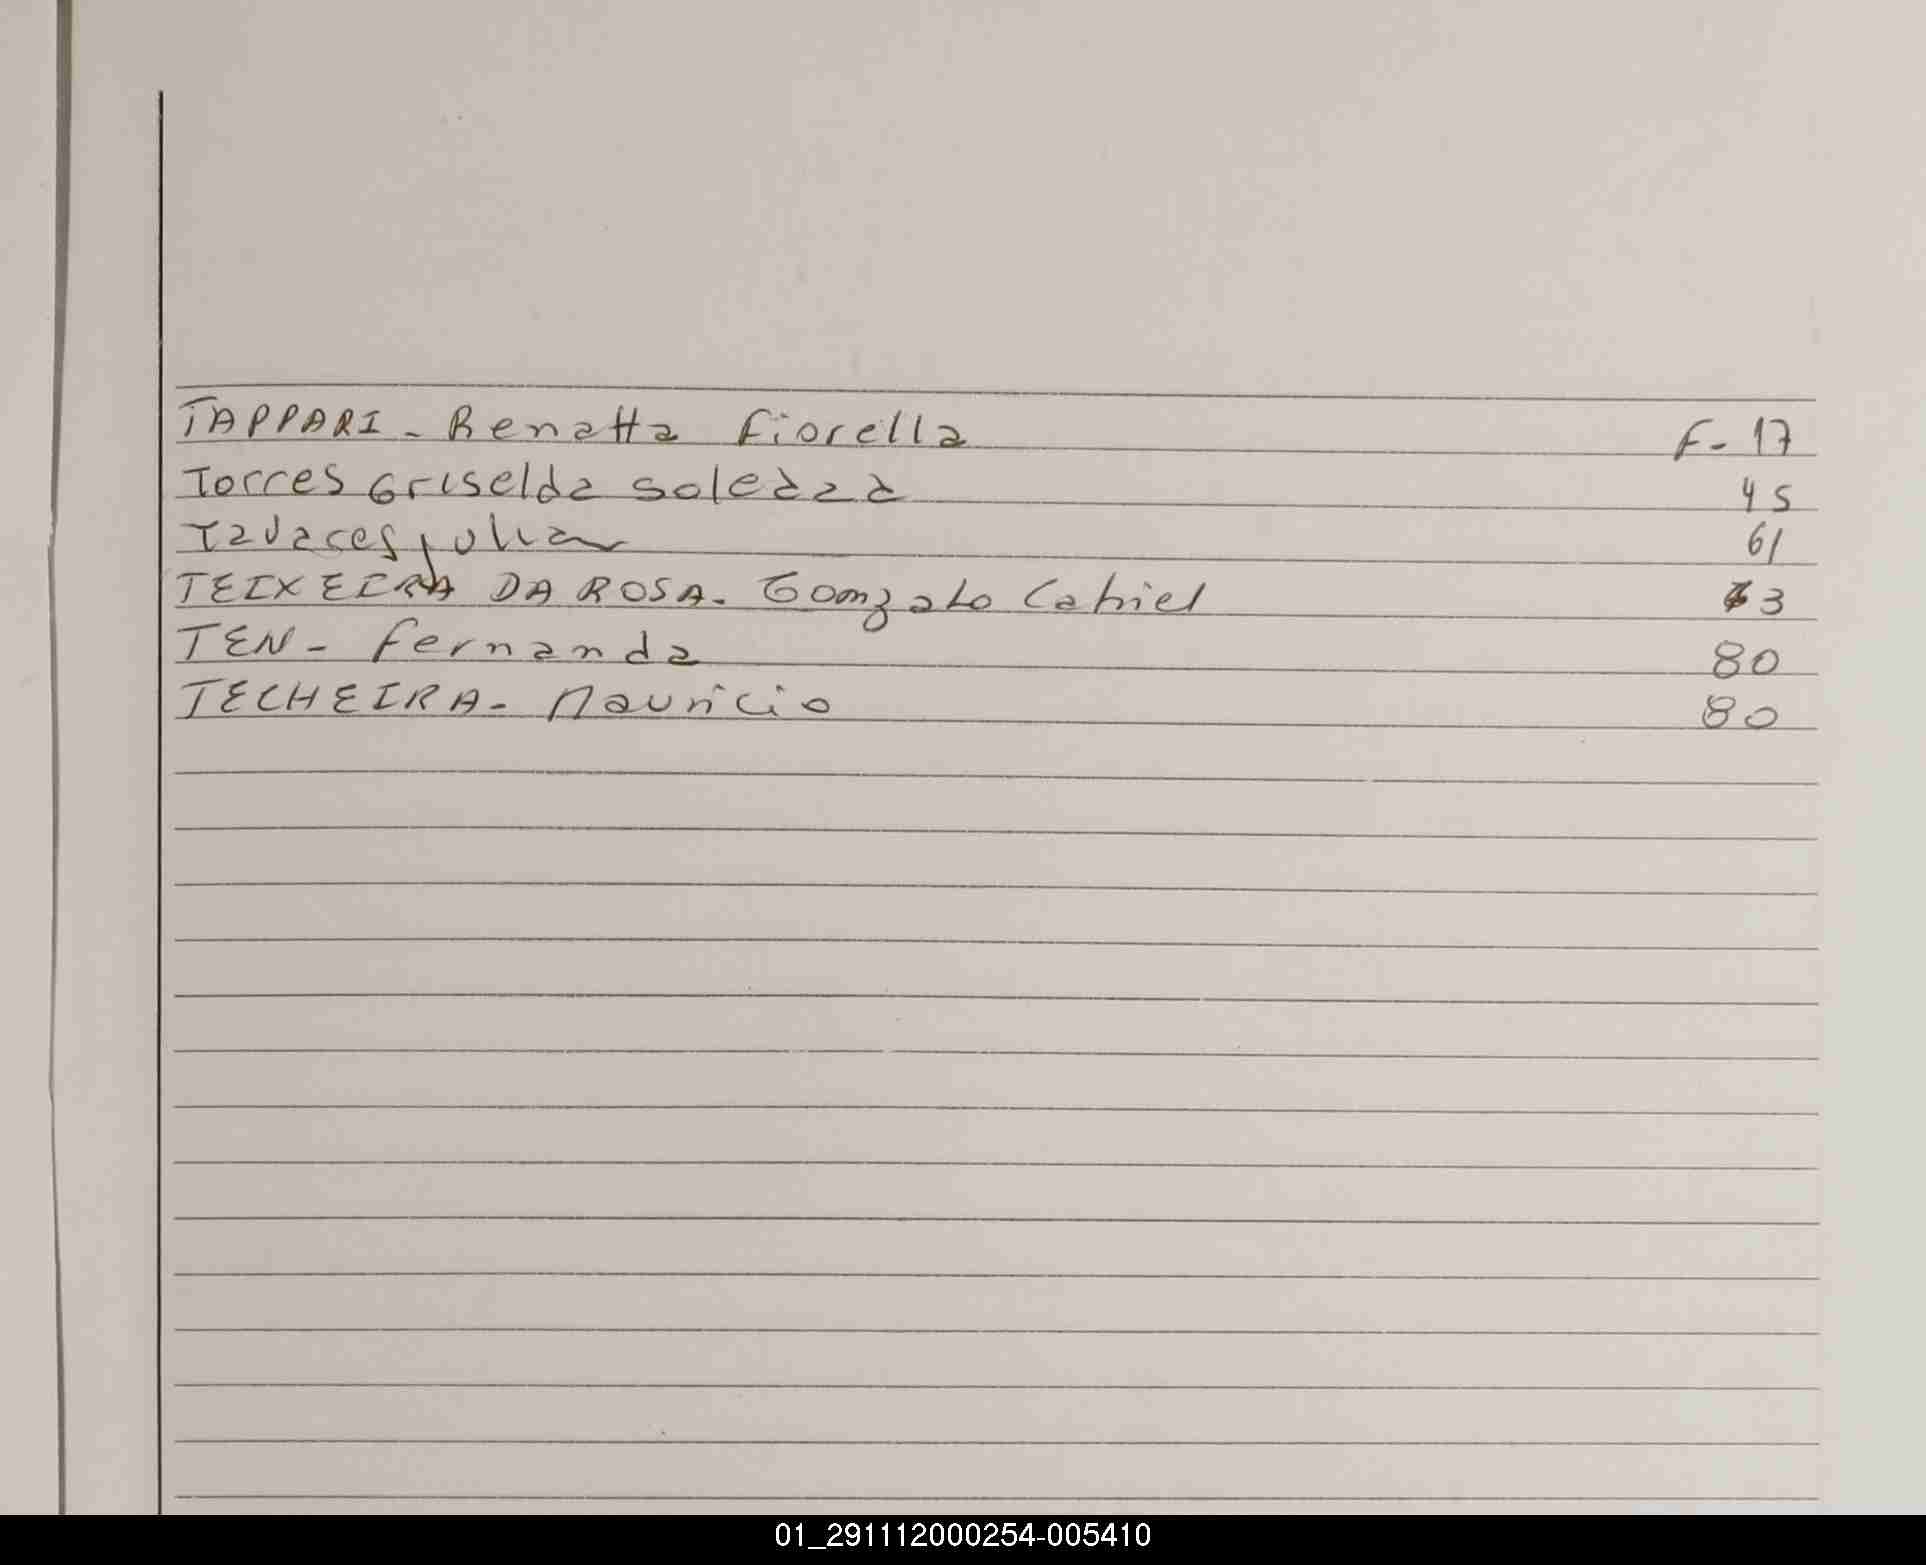 TAPPARI - Renatta Fiorella F - 17
Torres Griselda soledad 45
Tavares julian 61
TEIXEIRA DA ROSA - Gonzalo Cahiel 3
TEN - Fernanda 80
TECHEIRA - Mauricio 80
01_291112000254-005410